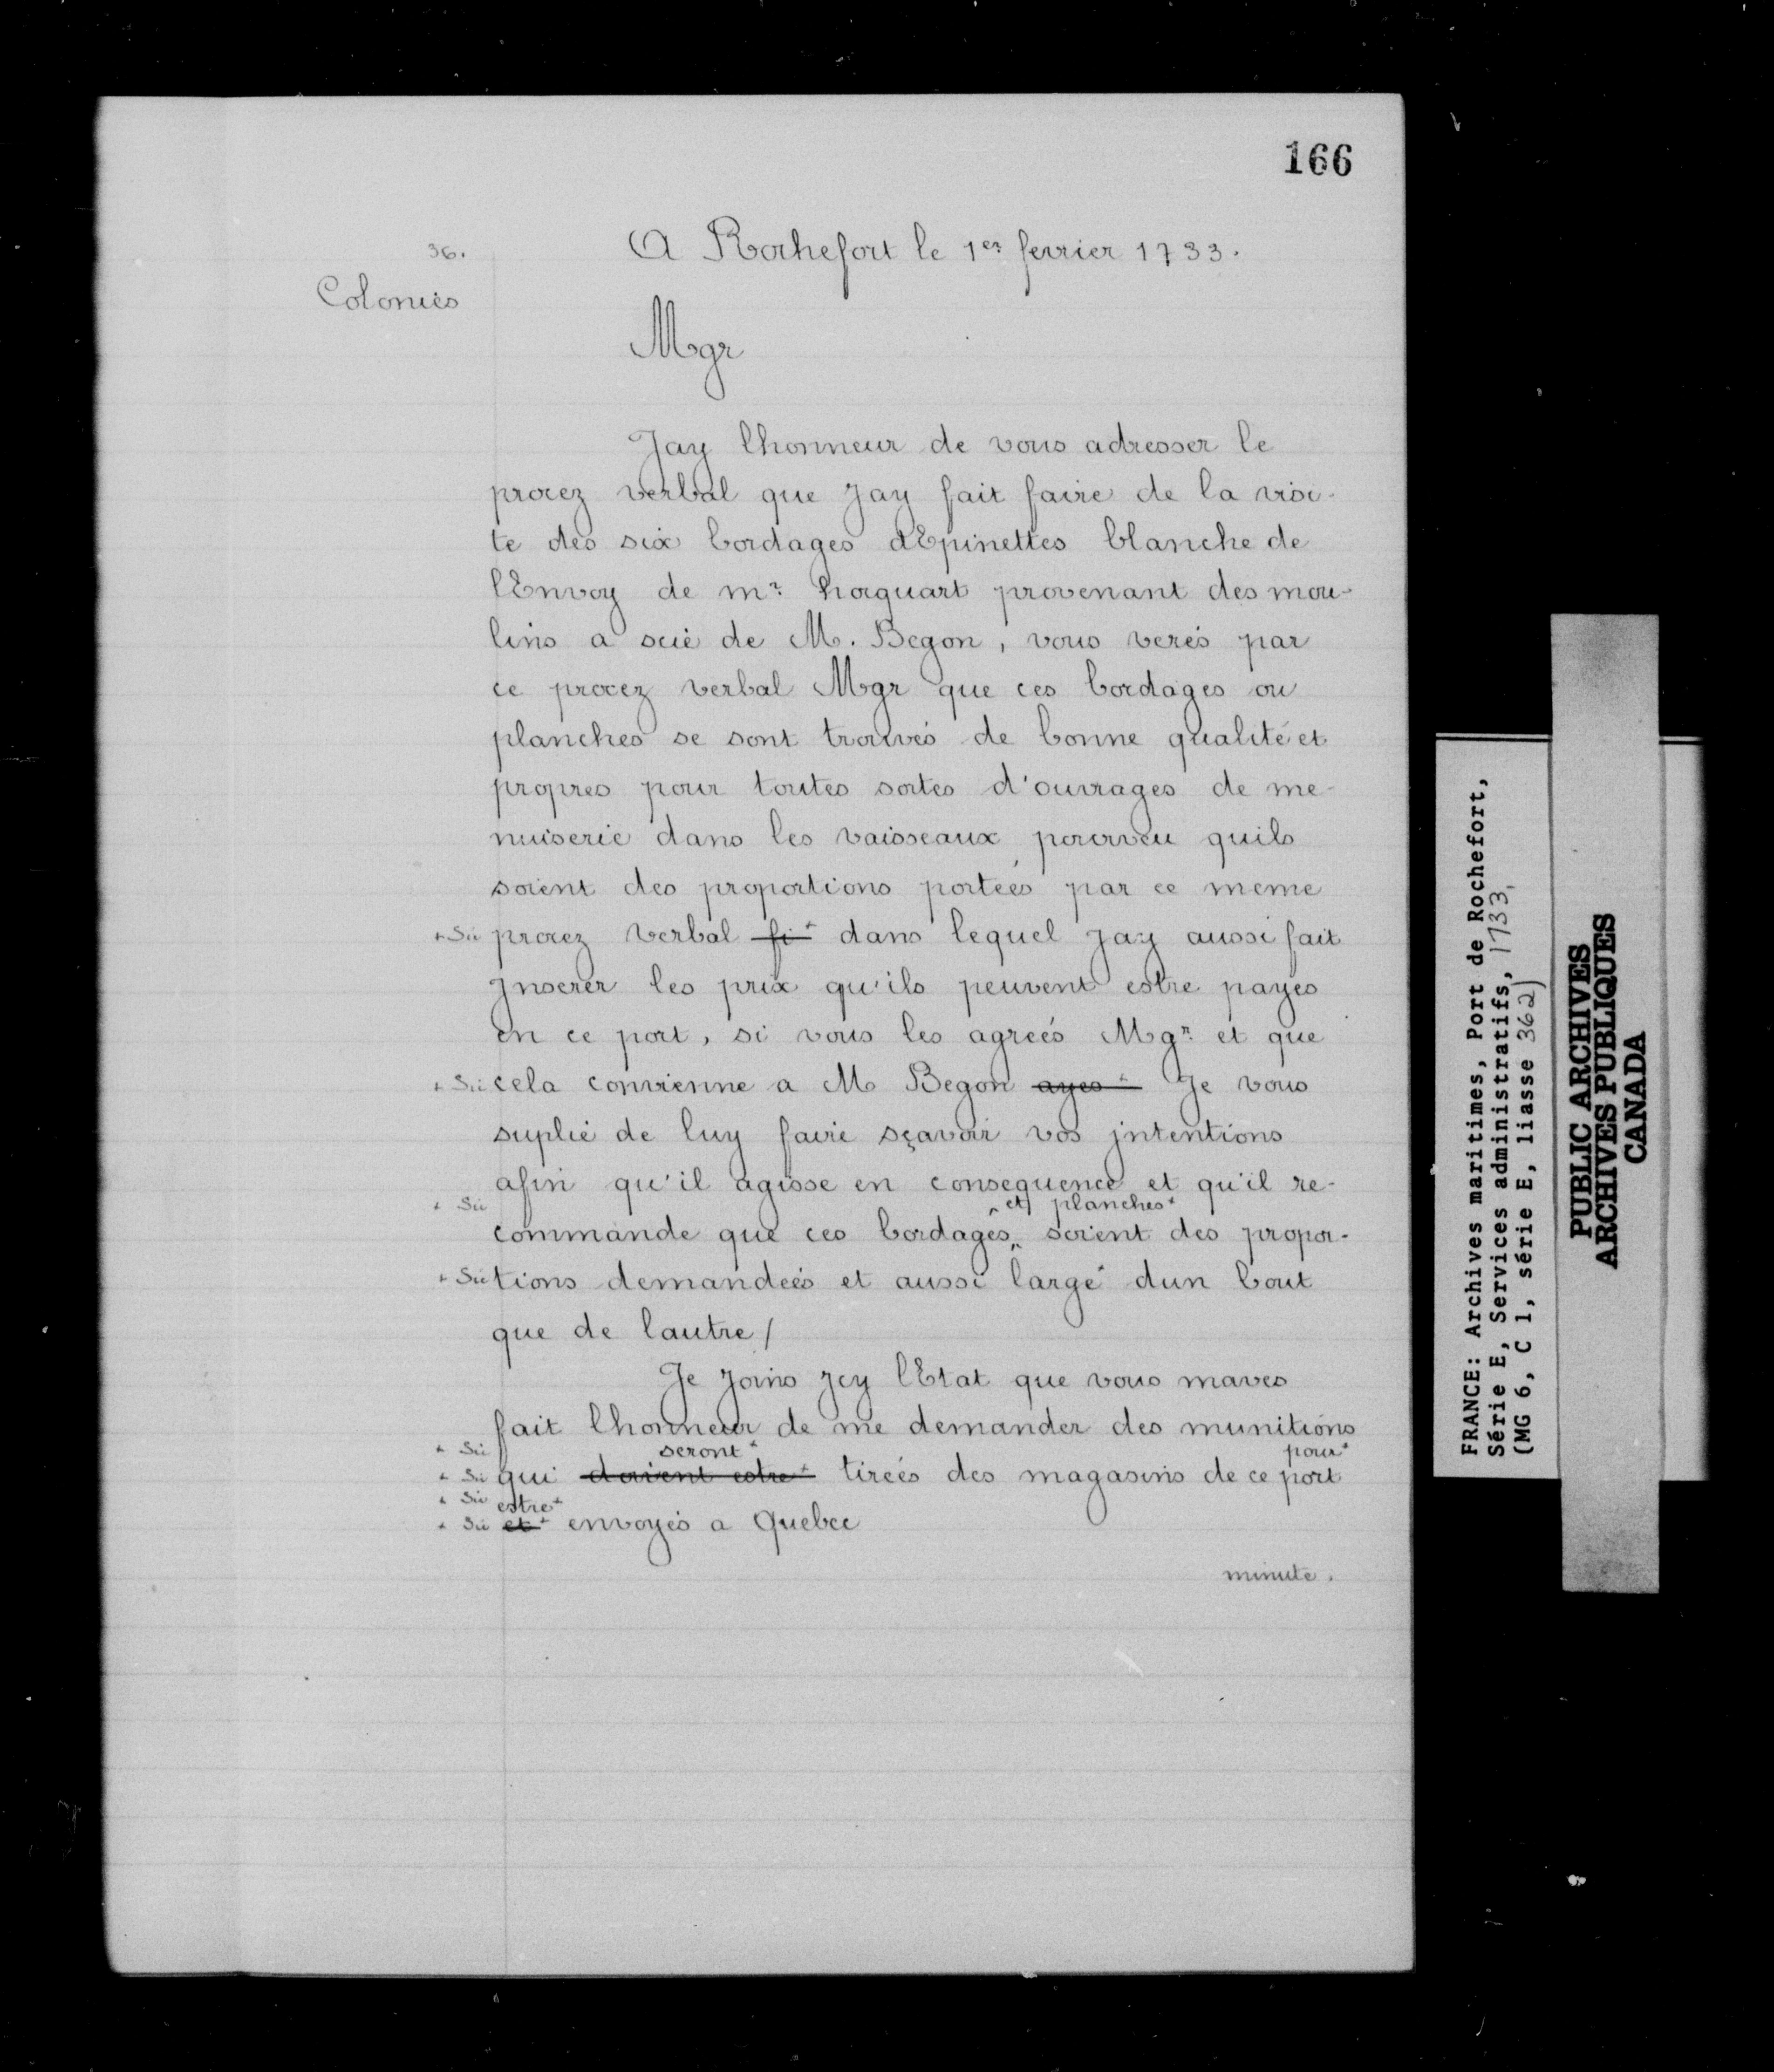 166
36.
A Rochefort le 1er fevrier 1733.
Colonies
Mgr
Jay lhonneur de vous adresser le
procez verbal que Jay fait faire de la visi-
te des six bordages dEpinettes blanche de
lEnvoy de mr. hocquart provenant des mou-
lins a scie de M. Begon, vous verés par
ce procez verbal Mgr que ces bordages ou
planches se sont trouvés de bonne qualité et
propres pour toutes sortes d'ouvrages de me-
nuiserie dans les vaisseaux, pourveu quils
soient des proportions portées par ce meme
+ Sic procez verbal fi+ dans lequel jay aussi fait
Jnserer les prix qu'ils peuvent estre payés
en ce port, si vous les agreés Mgr. et que
+ Sic cela convienne a M Begon ayes+ Je vous
suplie de luy faire sçavoir vos jntentions
afin qu'il agisse en consequence et qu'il re-
+ Sic et planches+
commande que ces bordages soient des propor-
+ Sic tions demandeés et aussi large+ dun bout
que de lautre/
Je Joins Jcy lEtat que vous maves
fait lhonneur de me demander des munitions
+ Sic seront+ pour+
+ Sic qui doivent estre+ tireés des magasins de ce port
+ Sic estre+
+ Sic et+ envoyés a Quebec
minute.
FRANCE: Archives maritimes, Port de Rochefort,
Série E, Services administratifs, 1733,
(MG 6, C 1, série E, liasse 362)
PUBLIC ARCHIVES
ARCHIVES PUBLIQUES
CANADA